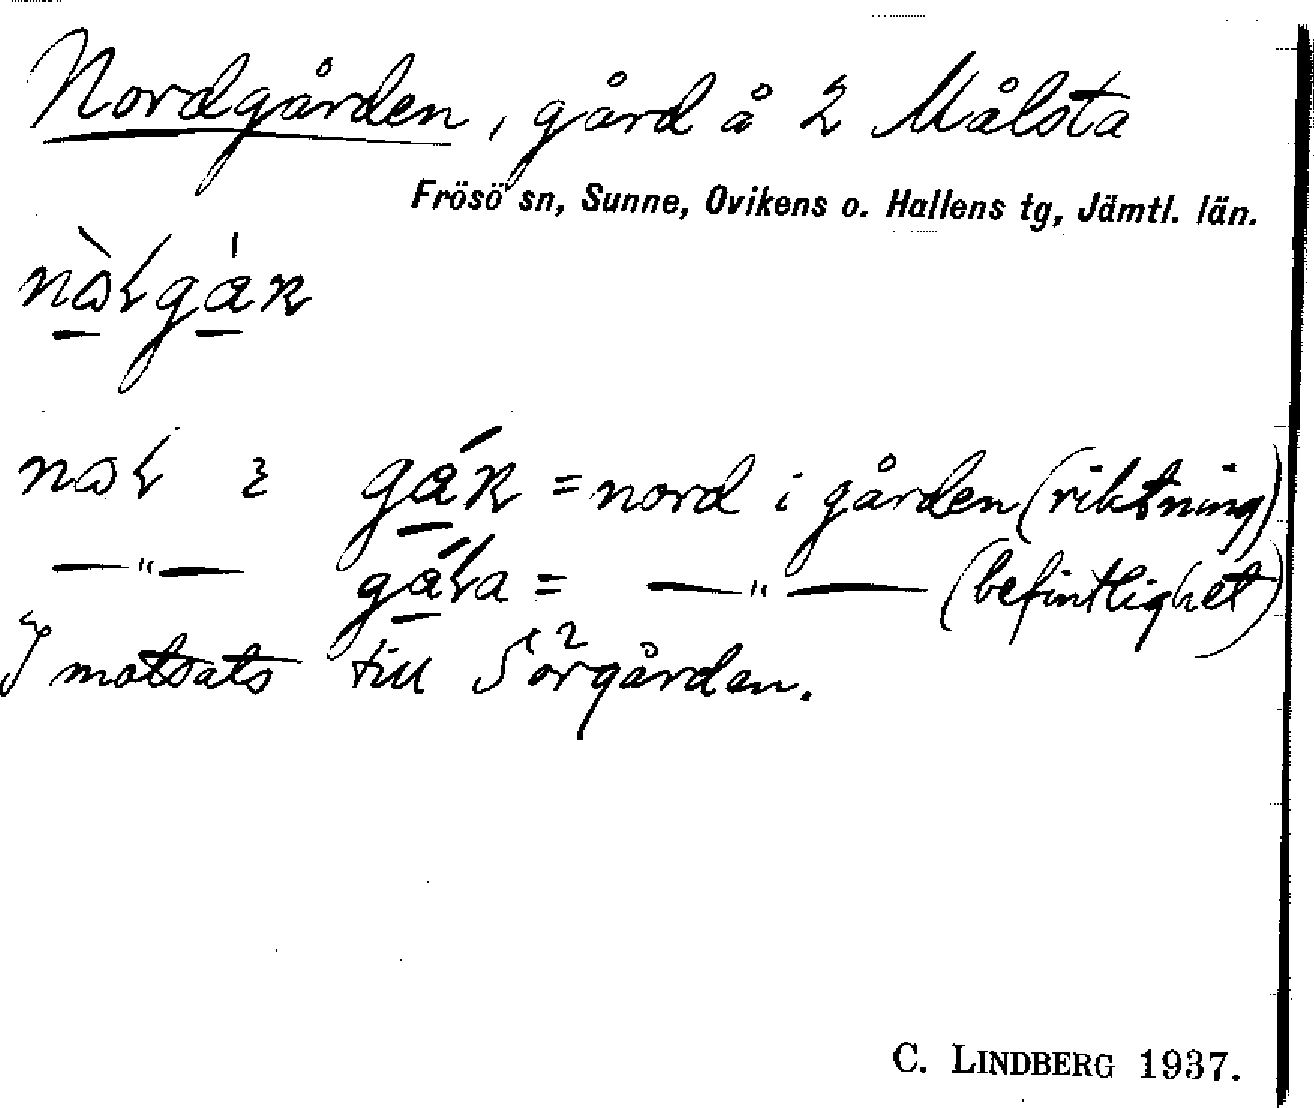 Nordgården, gård å 2 Målsta
Frösö sn, Sunne, Ovikens o. Hallens tg, Jämtl. län.
= nord i gården (riktning)
—〃— = —〃— (befintlighet)
I motsats till Sörgården.
C. LINDBERG 1937.